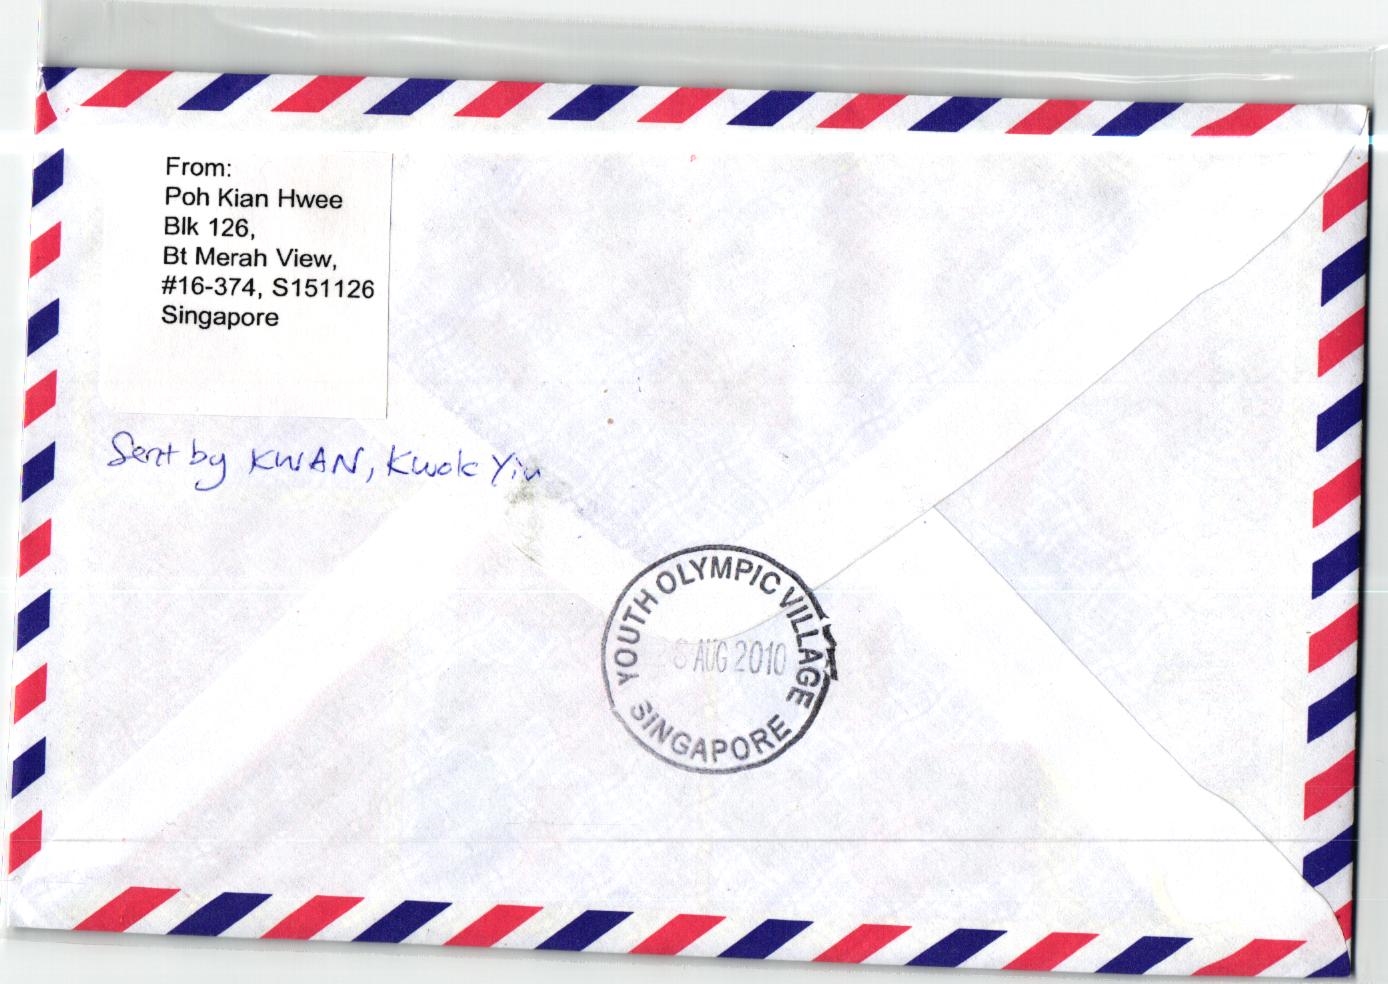 From:
Poh Kian Hwee
Blk 126,
Bt Merah View,
#16-374, S151126
Singapore
Sent by KWAN, Kwok Yiu
YOUTH OLYMPIC VILLAGE
AUG 2010
SINGAPORE